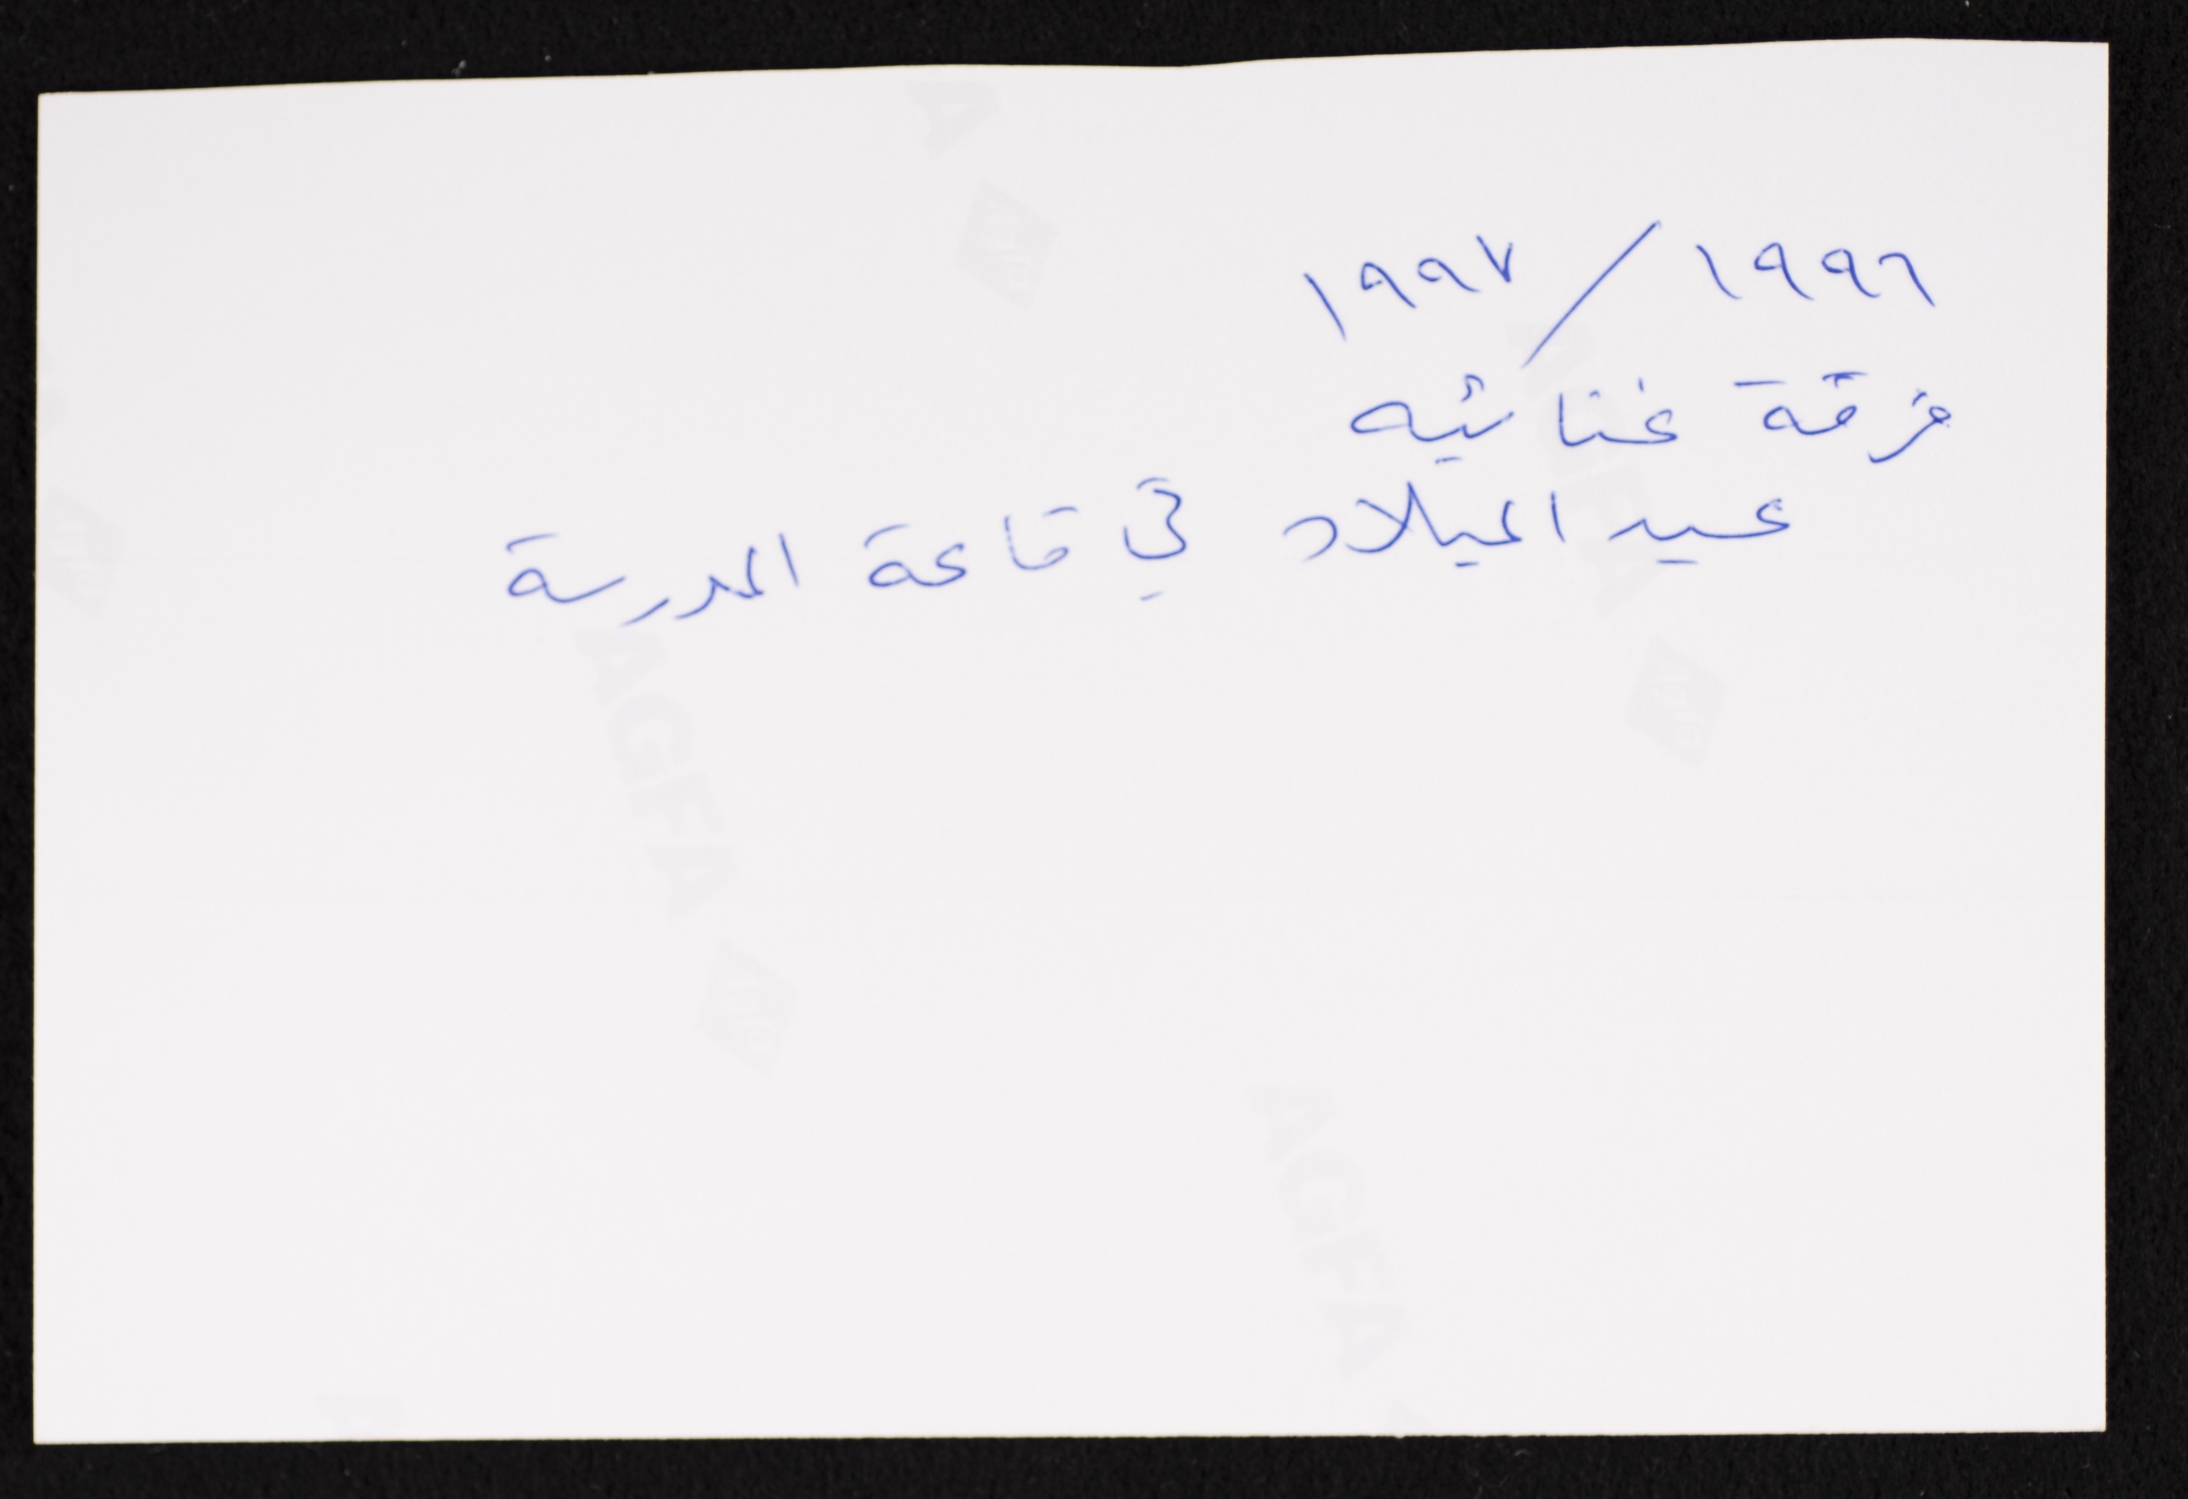 ١٩٩٦ / ١٩٩٧
فرقة غنائيه
عيد الميلاد في قاعة المدرسة
AGFA
AGFA
AGFA